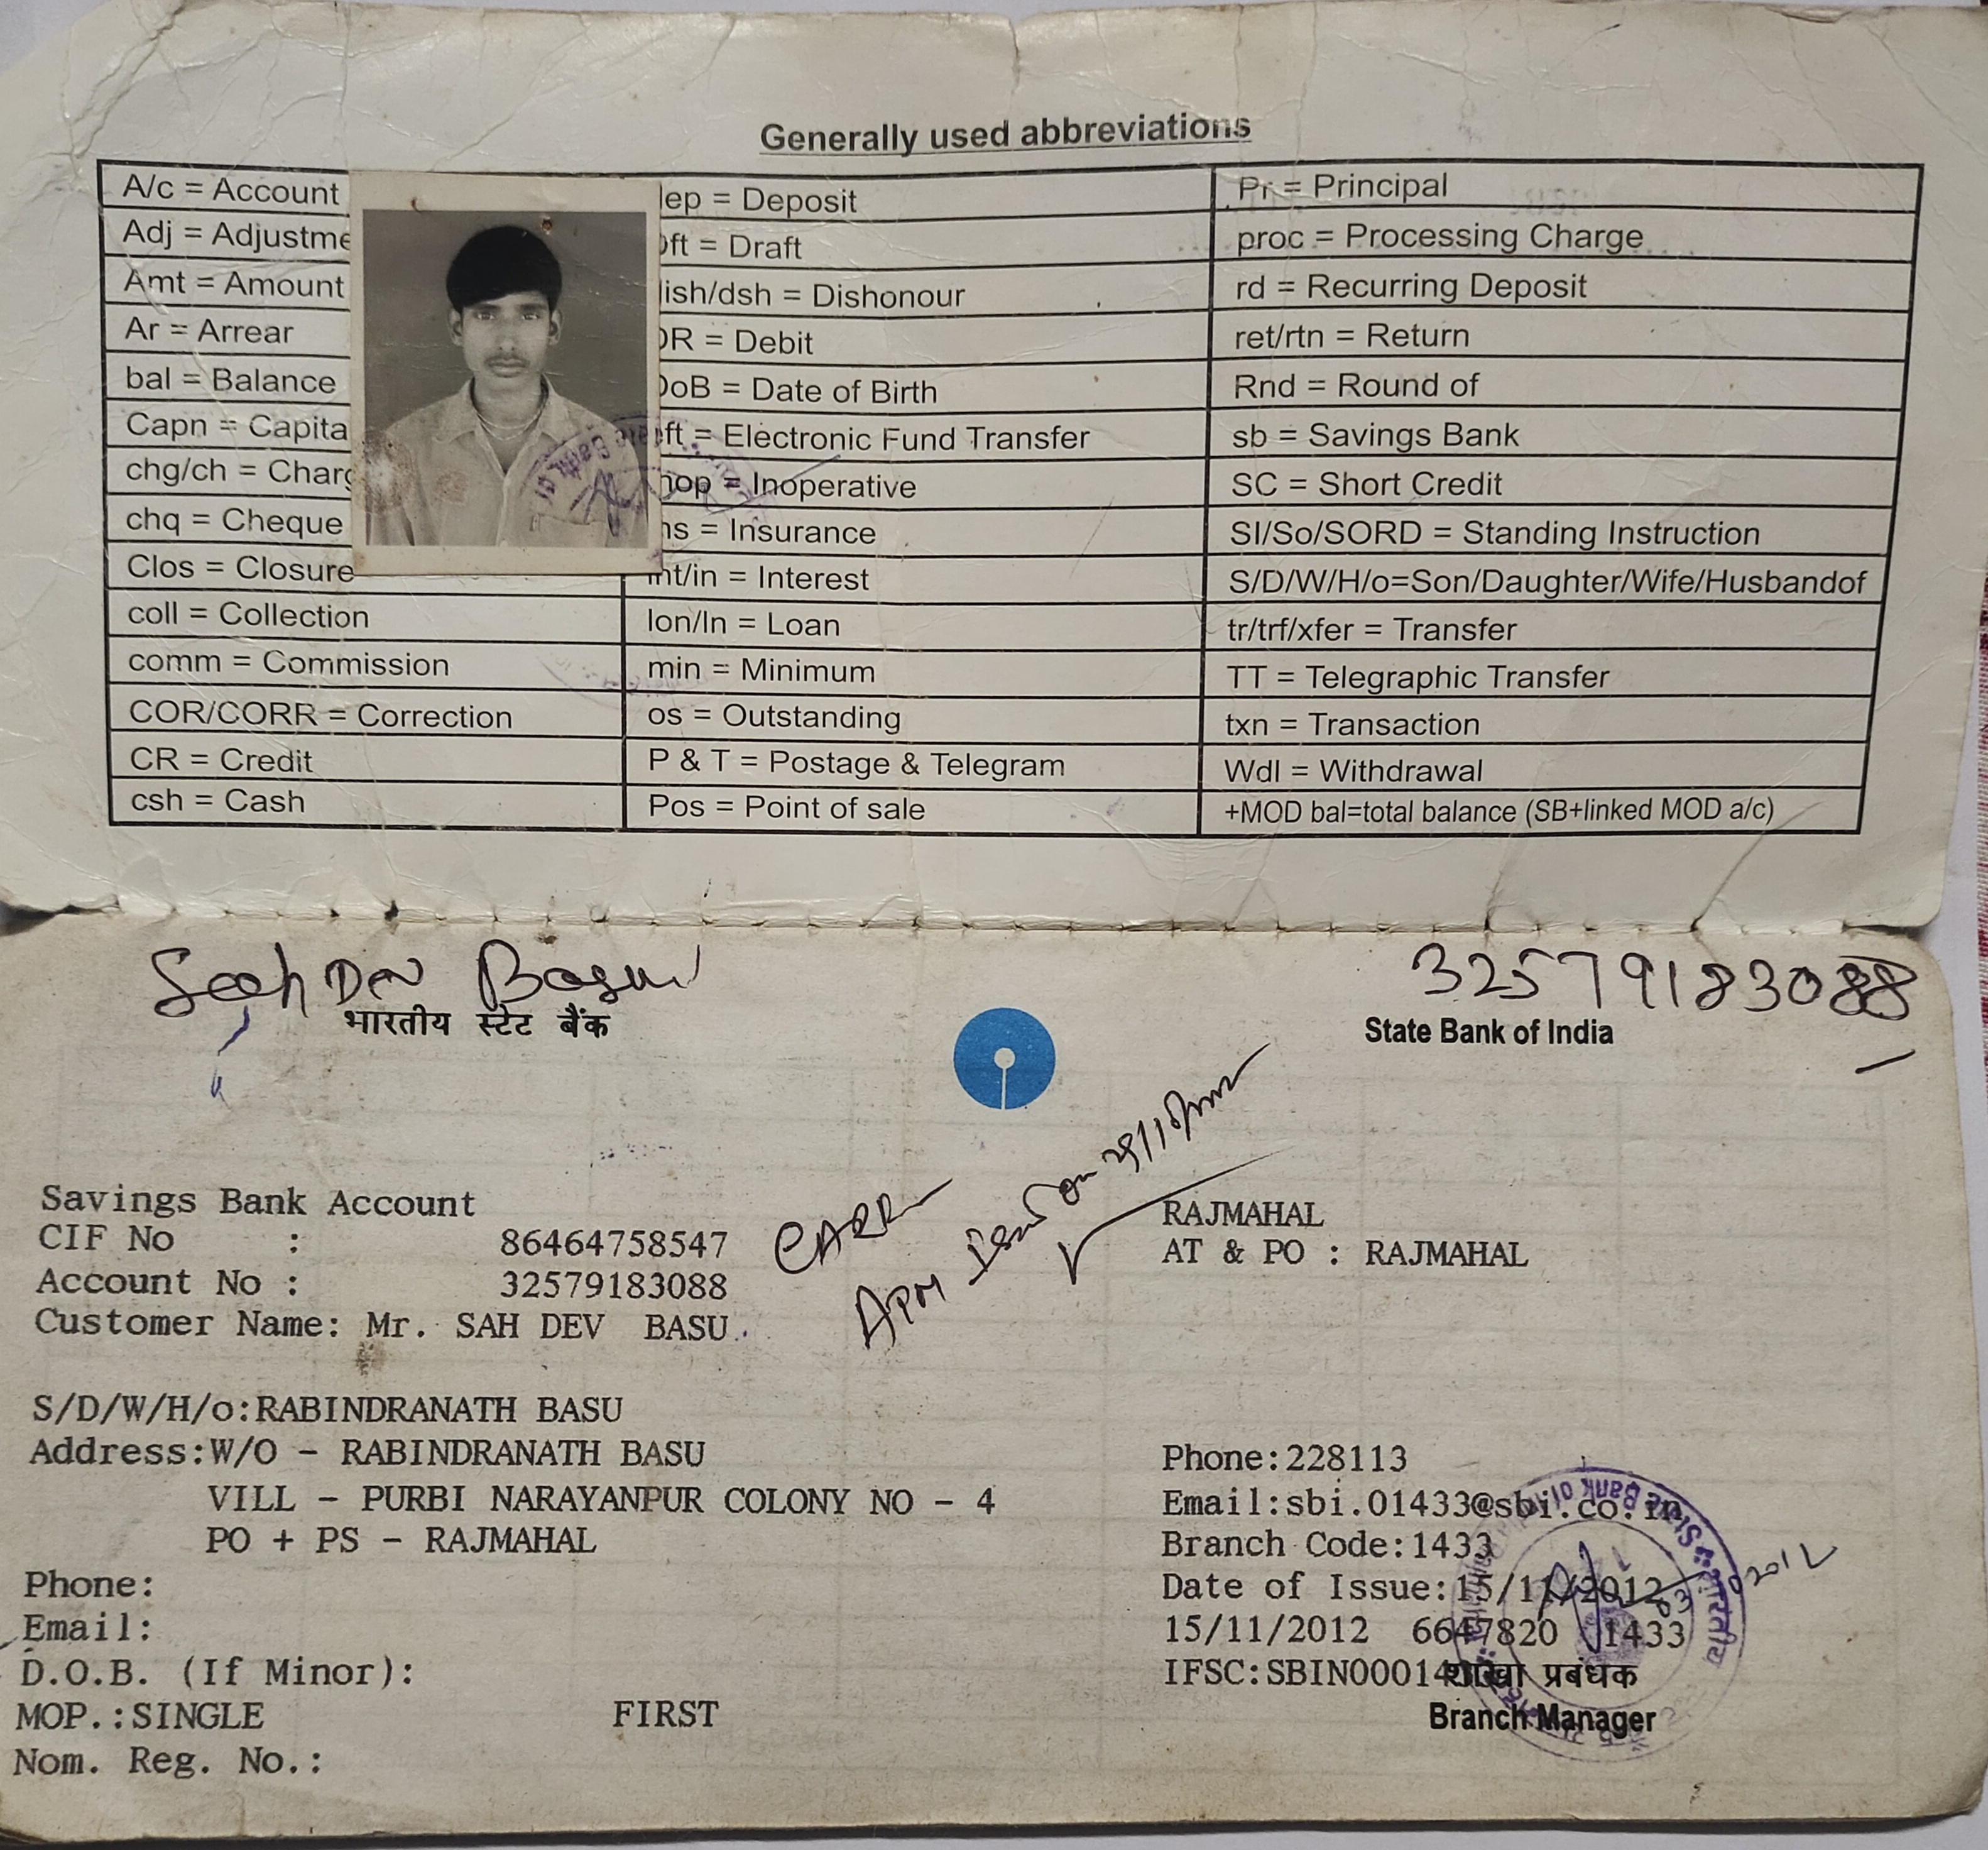 Generally used abbreviations
A/c = Account
Adj = Adjustme
Amt = Amount
Ar = Arrear
bal = Balance
Capn = Capita
chg/ch = Charg
chq = Cheque
Clos = Closure
coll = Collection
comm = Commission
COR/CORR = Correction
CR = Credit
csh = Cash
ep = Deposit
ft = Draft
ish/dsh = Dishonour
R = Debit
oB = Date of Birth
ft = Electronic Fund Transfer
nop = Inoperative
ns = Insurance
int/in = Interest
lon/ln = Loan
min = Minimum
os = Outstanding
P & T = Postage & Telegram
Pos = Point of sale
Pr = Principal
proc = Processing Charge
rd = Recurring Deposit
ret/rtn = Return
Rnd = Round of
sb = Savings Bank
SC = Short Credit
SI/So/SORD = Standing Instruction
S/D/W/H/o=Son/Daughter/Wife/Husbandof
tr/trf/xfer = Transfer
TT = Telegraphic Transfer
txn = Transaction
Wdl = Withdrawal
+MOD bal=total balance (SB+linked MOD a/c)
Sah Dev Basu
32579183088
भारतीय स्टेट बैंक
State Bank of India
Savings Bank Account
CIF No : 86464758547
Account No : 32579183088
Customer Name: Mr. SAH DEV BASU
S/D/W/H/o:RABINDRANATH BASU
Address:W/O - RABINDRANATH BASU
VILL - PURBI NARAYANPUR COLONY NO - 4
PO + PS - RAJMAHAL
Phone:
Email:
D.O.B. (If Minor):
MOP.:SINGLE FIRST
Nom. Reg. No.:
RAJMAHAL
AT & PO : RAJMAHAL
Phone:228113
Email:sbi.01433@sbi.co.in
Branch Code:1433
Date of Issue:15/11/2012
15/11/2012 6647820 1433
IFSC:SBIN0001433
शाखा प्रबंधक
Branch Manager